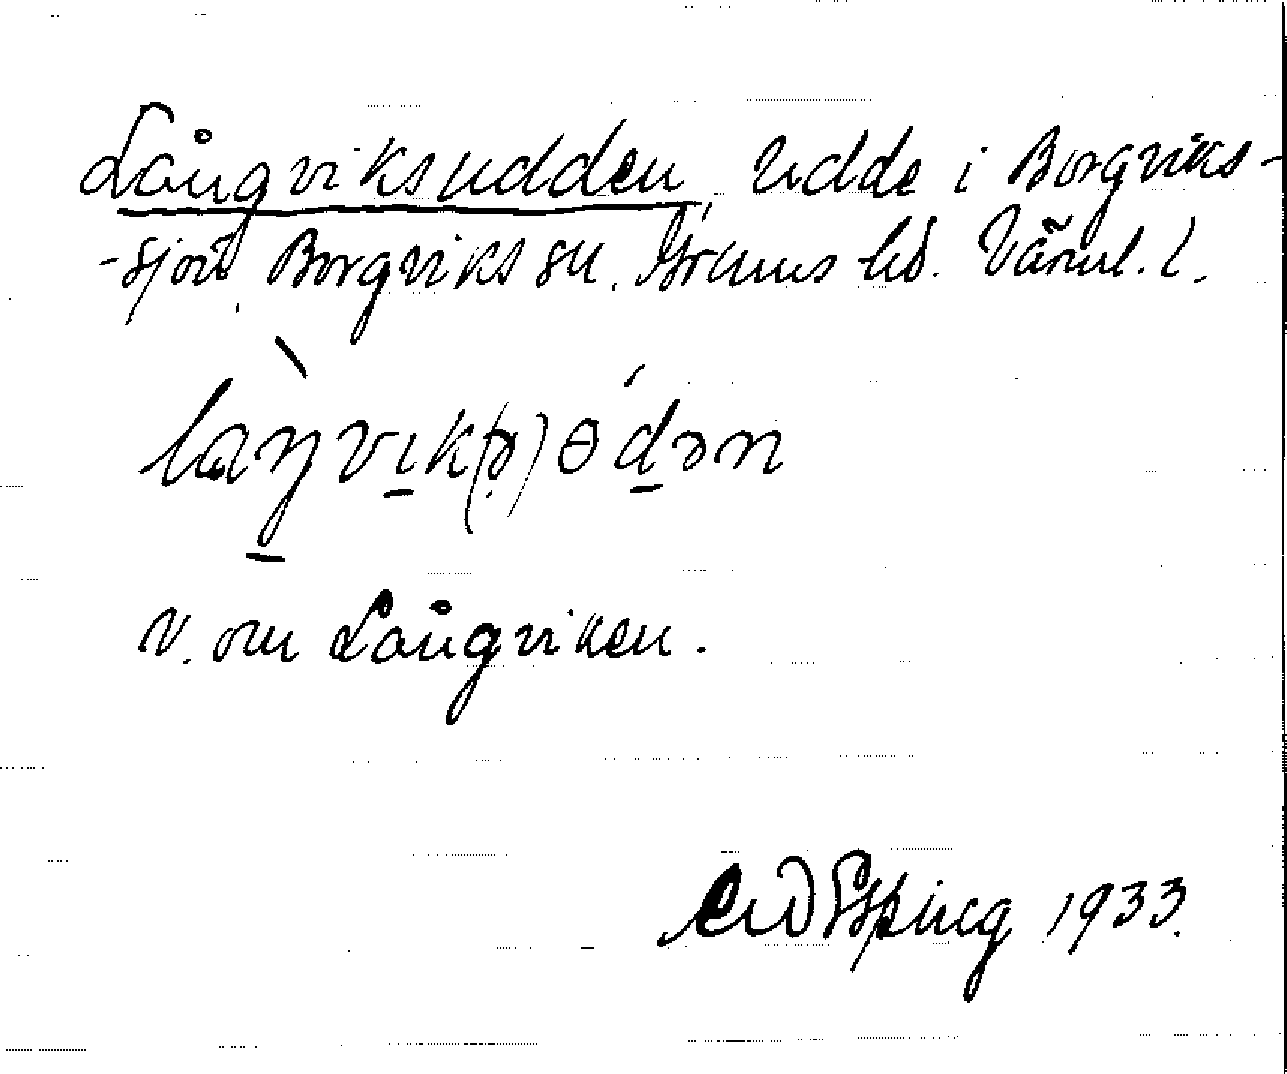 Långviksudden, Udde i Borgviks-
-sjön, Borgviks sn. Grums hd. Värml. l.
làŋvik(s)ɵdən
V. om Långviken.
Espling 1933.